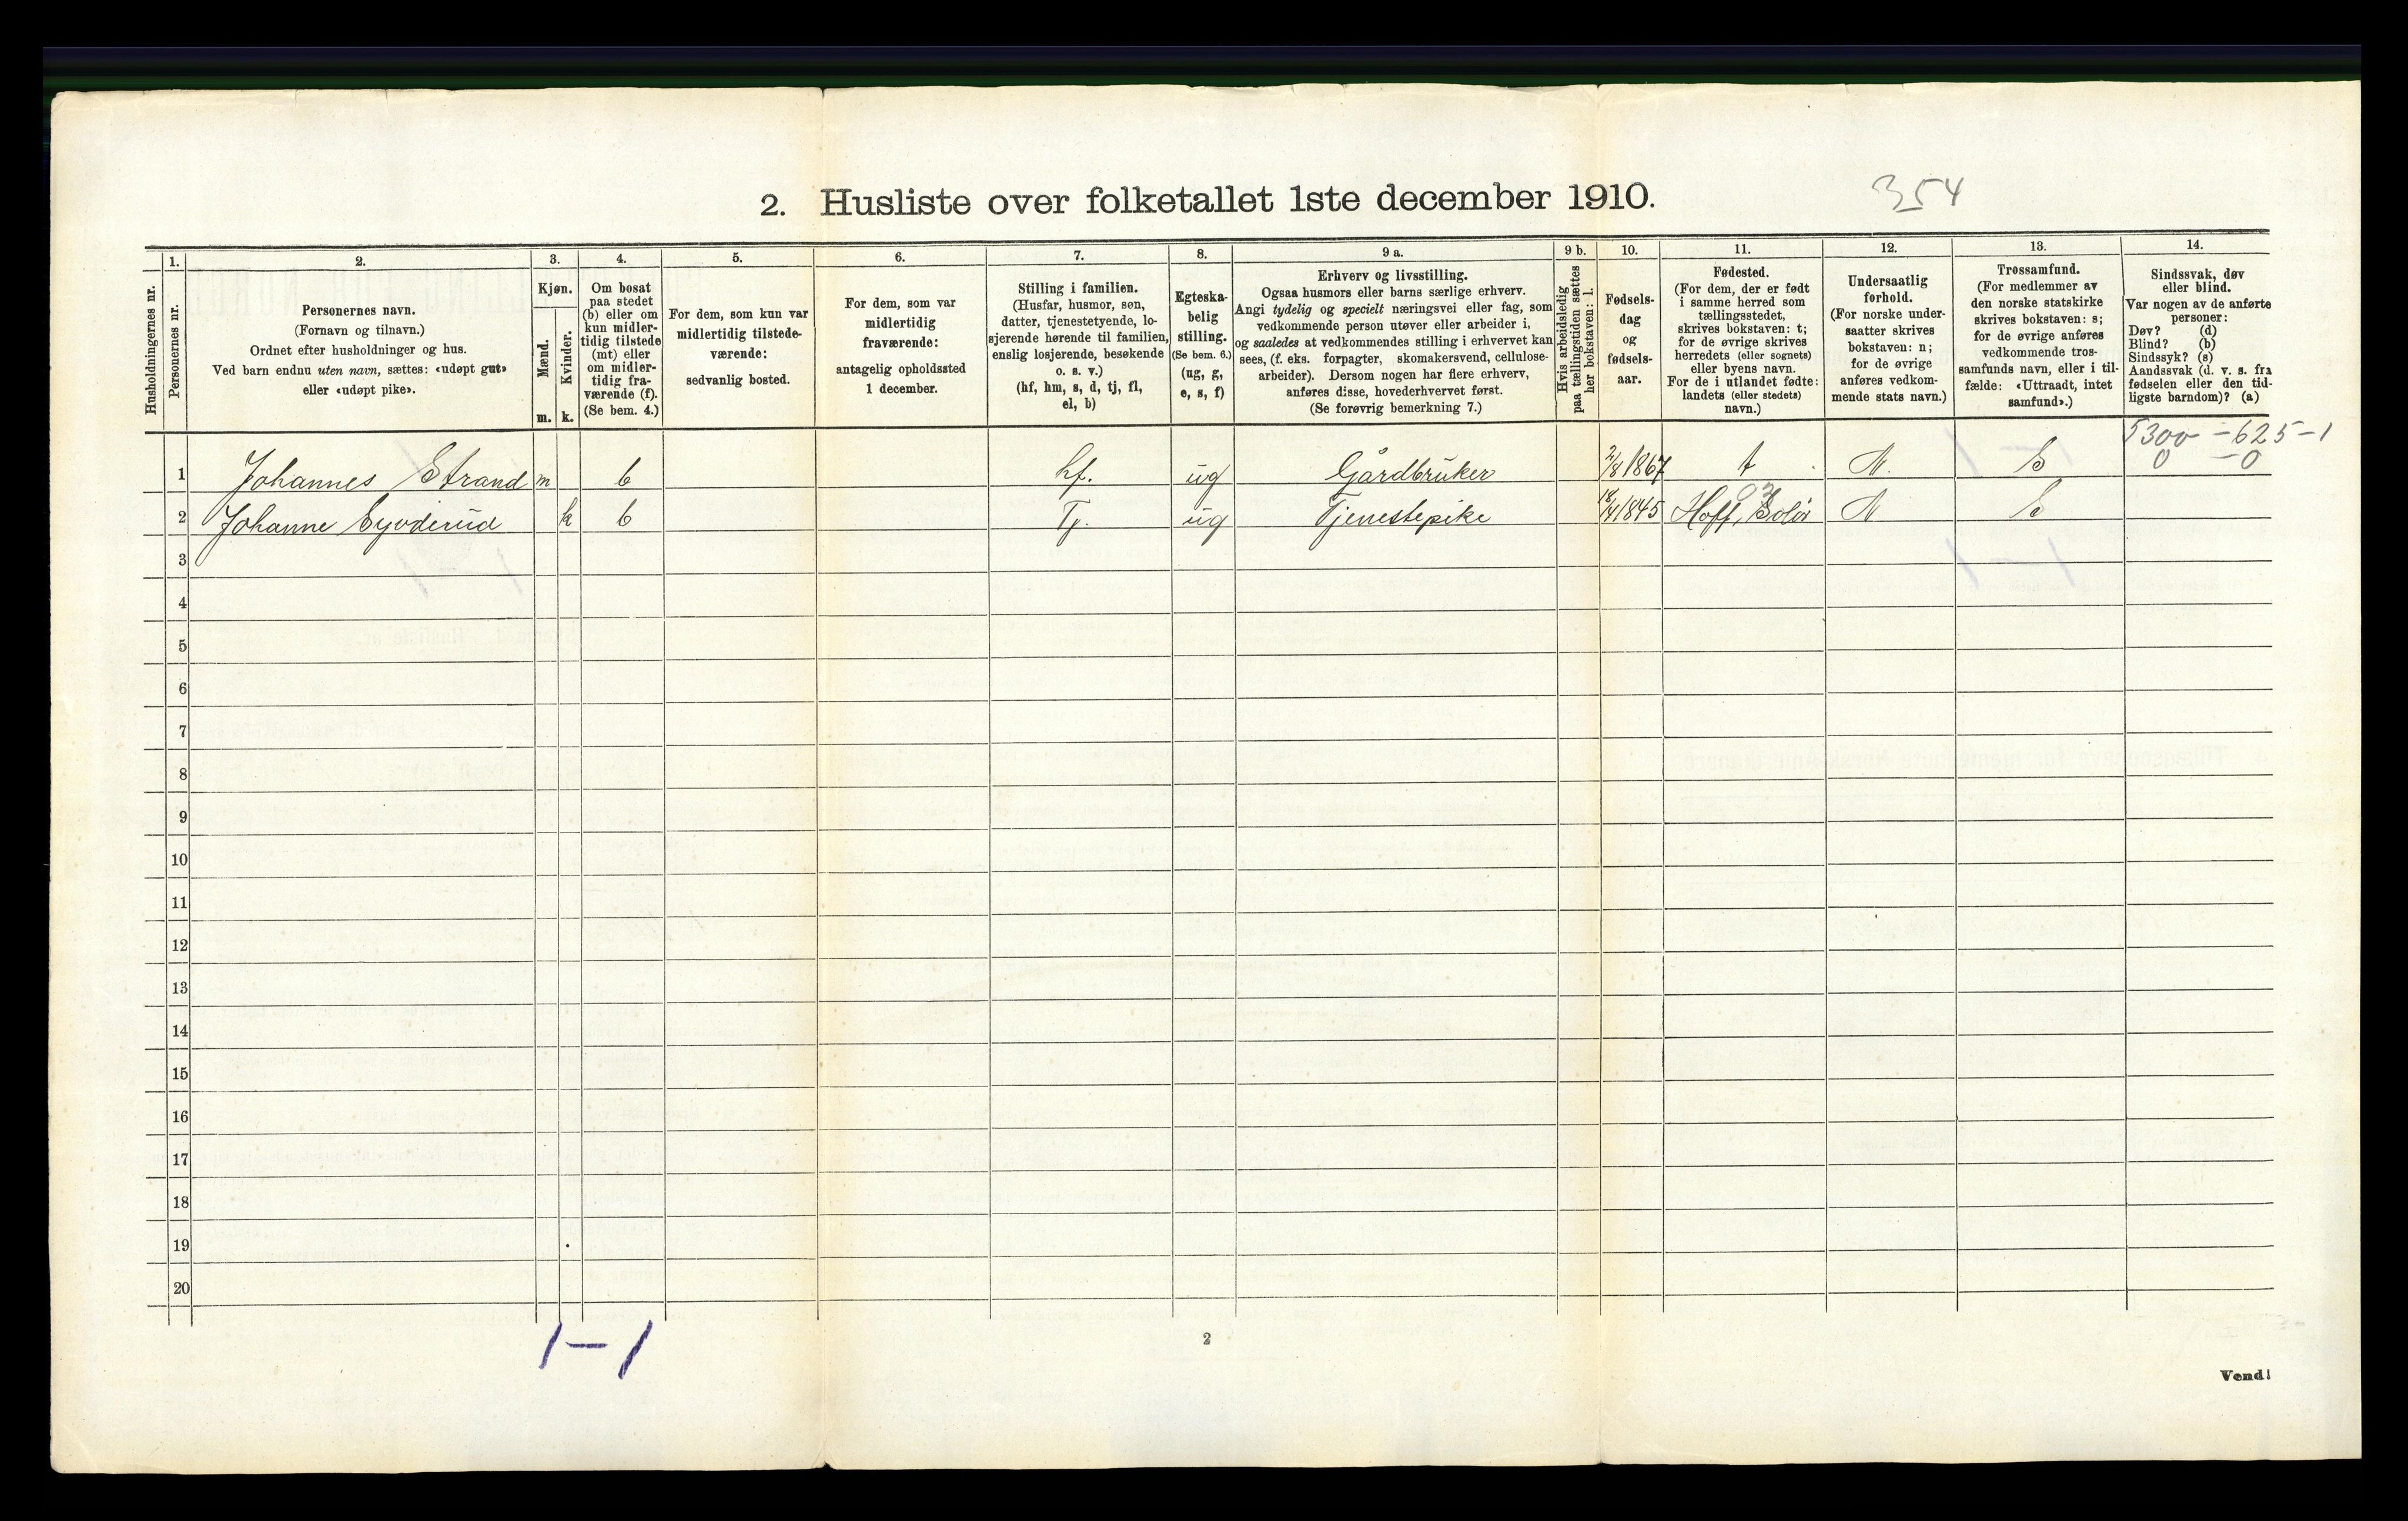 2. Husliste over folketallet 1ste december 1910.
354
Husholdningernes nr.
1.
Personernes nr.
2.
Personernes navn.
(Fornavn og tilnavn.)
Ordnet efter husholdninger og hus.
Ved barn endnu uten navn, sættes: «udøpt gut»
eller «udøpt pike».
3.
Kjøn.
Mænd.
Kvinder.
m. k.
4.
Om bosat
paa stedet
(b) eller om
kun midler-
tidig tilstede
(mt) eller
om midler-
tidig fra-
værende (f).
(Se bem. 4.)
5.
For dem, som kun var
midlertidig tilstede-
værende:
sedvanlig bosted.
6.
For dem, som var
midlertidig
fraværende:
antagelig opholdssted
1 december.
7.
Stilling i familien.
(Husfar, husmor, søn,
datter, tjenestetyende, lo-
sjerende hørende til familien,
enslig losjerende, besøkende
o. s. v.)
(hf, hm, s, d, tj, fl,
el, b)
8.
Egteska-
belig
stilling.
(Se bem. 6.)
(ug, g,
e, s, f)
9 a.
Erhverv og livsstilling.
Ogsaa husmors eller barns særlige erhverv.
Angi tydelig og specielt næringsvei eller fag, som
vedkommende person utøver eller arbeider i,
og saaledes at vedkommendes stilling i erhvervet kan
sees, (f. eks. forpagter, skomakersvend, cellulose-
arbeider). Dersom nogen har flere erhverv,
anføres disse, hovederhvervet først.
(Se forøvrig bemerkning 7.)
9 b.
Hvis arbeidsledig
paa tællingstiden sættes
her bokstaven: l.
10.
Fødsels-
dag
og
fødsels-
aar.
11.
Fødested.
(For dem, der er født
i samme herred som
tællingsstedet,
skrives bokstaven: t;
for de øvrige skrives
herredets (eller sognets)
eller byens navn.
For de i utlandet fødte:
landets (eller stedets)
navn.)
12.
Undersaatlig
forhold.
(For norske under-
saatter skrives
bokstaven: n;
for de øvrige
anføres vedkom-
mende stats navn.)
13.
Trossamfund.
(For medlemmer av
den norske statskirke
skrives bokstaven: s;
for de øvrige anføres
vedkommende tros-
samfunds navn, eller i til-
fælde: «Uttraadt, intet
samfund».)
14.
Sindssvak, døv
eller blind.
Var nogen av de anførte
personer:
Døv? (d)
Blind? (b)
Sindssyk? (s)
Aandssvak (d. v. s. fra
fødselen eller den tid-
ligste barndom)? (a)
5300 - 625 - 1
0 - 0
1 Johannes Strand m b hf. ug Gårdbruker 2/8 1867 t N. S
2 Johanne k b Tj. ug Tjenestepike 18/4 1845 Hoff, Solør N S
3
4
5
6
7
8
9
10
11
12
13
14
15
16
17
18
19
20
1 - 1
2
Vend!